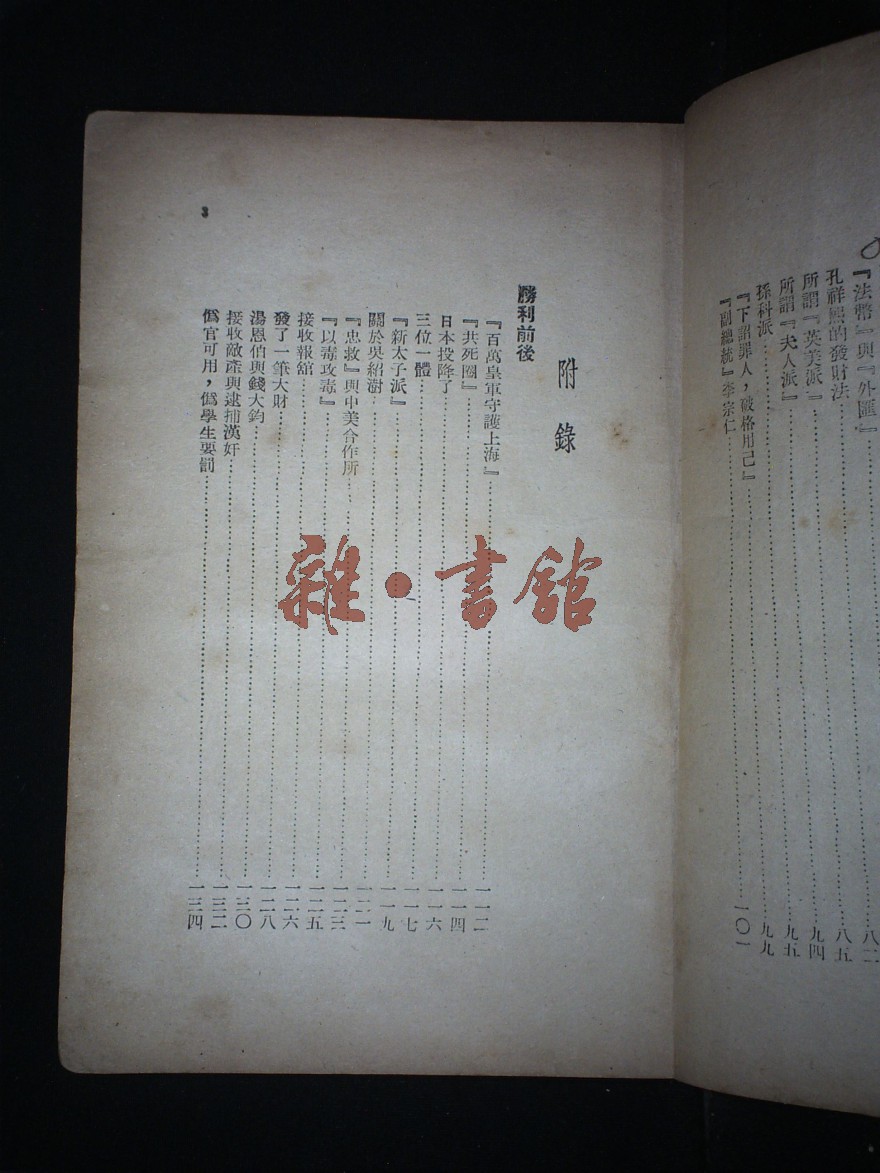 『法幣』與『外匯』 八二
孔祥熙的發財法 八五
所謂『英美派』 九四
所謂『夫人派』 九五
孫科派 九九
『下詔罪人，破格用己』
『副總統』李宗仁 一〇一
附錄
勝利前後
『百萬皇軍守護上海』 一一二
『共死圈』 一一四
日本投降了 一一六
三位一體 一一七
『新太子派』 一一九
關於吳紹澍 一二一
『忠救』與中美合作所 一二三
『以毒攻毒』 一二五
接收報館 一二六
發了一筆大財 一二八
湯恩伯與錢大鈞 一三〇
接收敵產與逮捕漢奸 一三二
僞官可用，僞學生要罰 一三四
3
雜·書館